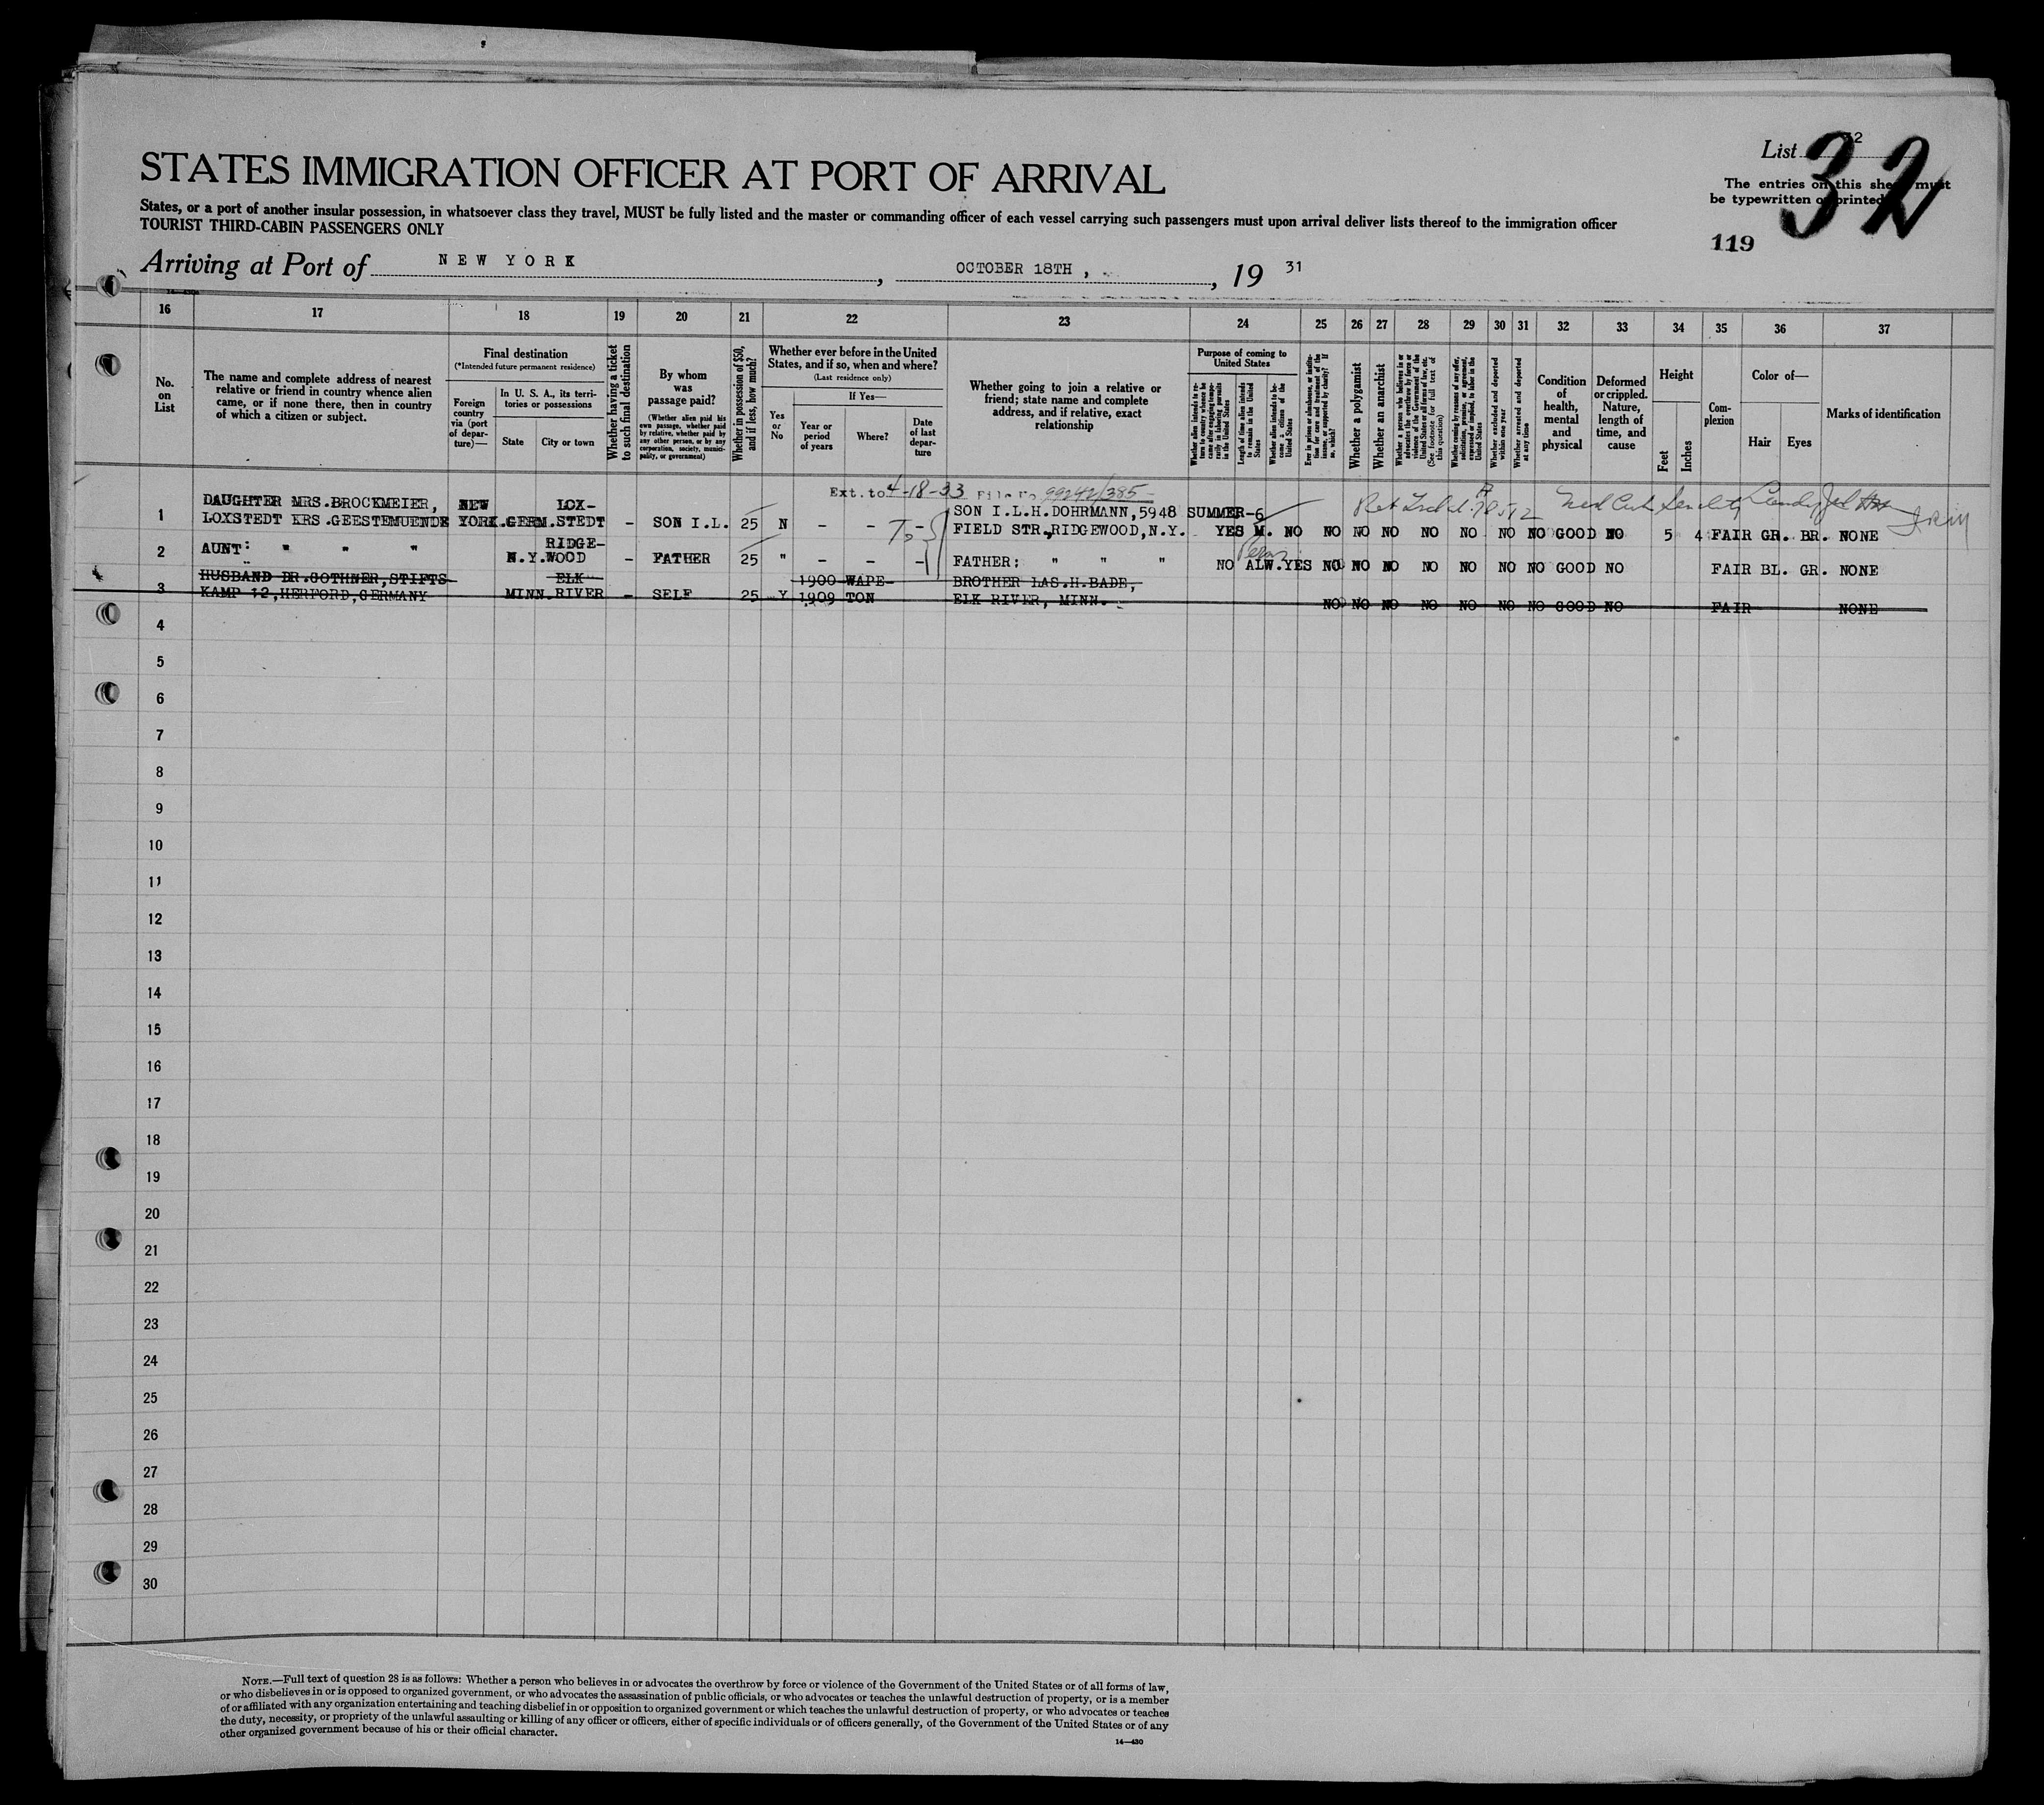 List 32
32
STATES IMMIGRATION OFFICER AT PORT OF ARRIVAL
The entries on this sheet must
be typewritten or printed
States, or a port of another insular possession, in whatsoever class they travel, MUST be fully listed and the master or commanding officer of each vessel carrying such passengers must upon arrival deliver lists thereof to the immigration officer
TOURIST THIRD-CABIN PASSENGERS ONLY
119
Arriving at Port of NEW YORK, OCTOBER 18TH, , 19 31
16 17 18 19 20 21 22 23 24 25 26 27 28 29 30 31 32 33 34 35 36 37
No. on List
The name and complete address of nearest relative or friend in country whence alien came, or if none there, then in country of which a citizen or subject.
Final destination
(*Intended future permanent residence)
Foreign country via (port of departure)—
In U. S. A., its territories or possessions
State
City or town
Whether having a ticket to such final destination
By whom was passage paid?
(Whether alien paid his own passage, whether paid by relative, whether paid by any other person, or by any corporation, society, municipality, or government)
Whether in possession of $50, and if less, how much?
Whether ever before in the United States, and if so, when and where?
(Last residence only)
Yes or No
If Yes—
Year or period of years
Where?
Date of last departure
Whether going to join a relative or friend; state name and complete address, and if relative, exact relationship
Purpose of coming to United States
Whether alien intends to return to country whence he came after engaging temporarily in laboring pursuits in the United States
Length of time alien intends to remain in the United States
Whether alien intends to become a citizen of the United States
Ever in prison or almshouse, or institution for care and treatment of the insane, or supported by charity? If so, which?
Whether a polygamist
Whether an anarchist
Whether a person who believes in or advocates the overthrow by force or violence of the Government of the United States or all forms of law, etc. (See footnote for full text of this question)
Whether coming by reason of any offer, solicitation, promise, or agreement, expressed or implied, to labor in the United States
Whether excluded and deported within one year
Whether arrested and deported at any time
Condition of health, mental and physical
Deformed or crippled. Nature, length of time, and cause
Height
Feet
Inches
Complexion
Color of—
Hair
Eyes
Marks of identification
Ext. to 4-18-33 File No 99242/385
1 DAUGHTER MRS.BROCKMEIER, NEW LOX- SON I.L.H.DOHRMANN,5948 SUMMER-6
LOXSTEDT KRS.GEESTEMUENDE YORK.GERM.STEDT - SON I.L. 25 N - - - FIELD STR.,RIDGEWOOD,N.Y. YES M. NO NO NO NO NO NO NO NO GOOD NO 5 4 FAIR GR. BR. NONE
2 AUNT: " " " RIDGE-
N.Y.WOOD - FATHER 25 " - - - FATHER: " " " NO ALW.YES NO NO NO NO NO NO NO GOOD NO FAIR BL. GR. NONE
3 HUSBAND DR.GOTHNER,STIFTS- ELK 1900 WAPE- BROTHER LAS.H.BADE,
KAMP 12,HERFORD,GERMANY MINN.RIVER - SELF 25 Y 1909 TON ELK RIVER, MINN. NO NO NO NO NO NO NO GOOD NO FAIR NONE
4
5
6
7
8
9
10
11
12
13
14
15
16
17
18
19
20
21
22
23
24
25
26
27
28
29
30
NOTE.—Full text of question 28 is as follows: Whether a person who believes in or advocates the overthrow by force or violence of the Government of the United States or of all forms of law,
or who disbelieves in or is opposed to organized government, or who advocates the assassination of public officials, or who advocates or teaches the unlawful destruction of property, or is a member
of or affiliated with any organization entertaining and teaching disbelief in or opposition to organized government or which teaches the unlawful destruction of property, or who advocates or teaches
the duty, necessity, or propriety of the unlawful assaulting or killing of any officer or officers, either of specific individuals or of officers generally, of the Government of the United States or of any
other organized government because of his or their official character.
14—430